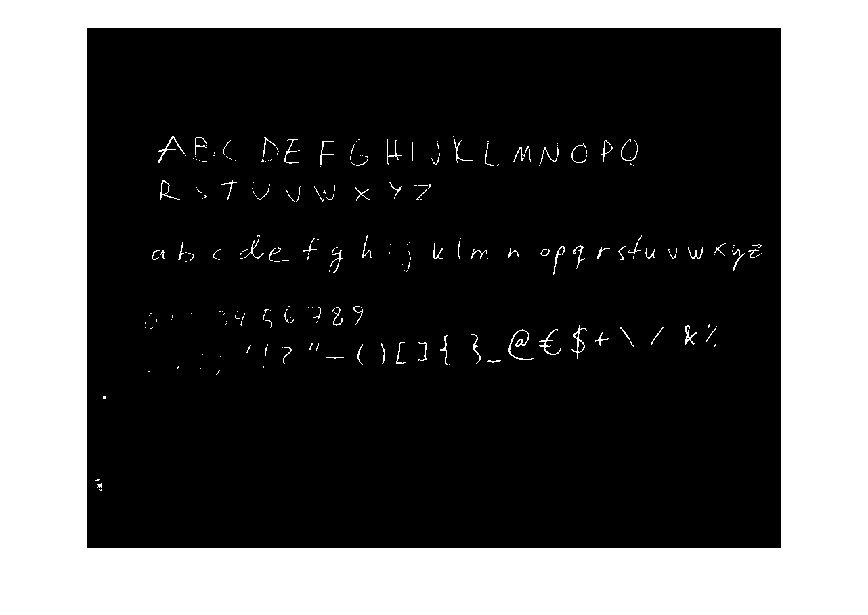 A B C D E F G H I J K L M N O P Q
R S T U V W X Y Z
a b c d e f g h i j k l m n o p q r s t u v w x y z
0 3 4 5 6 7 8 9
. , : ; " ! ? " - ( ) [ ] { } _ @ € $ + \ / & %